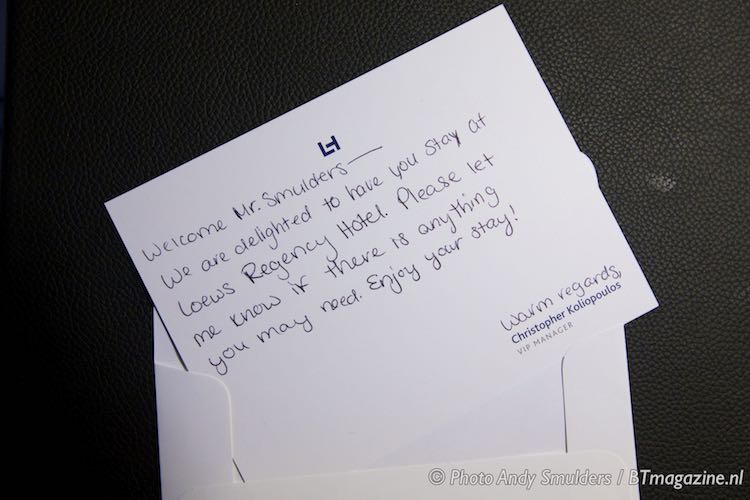 LH
Welcome Mr. Smulders—
We are delighted to have you stay at
Loews Regency Hotel. Please let
me know if there is anything
you may need. Enjoy your stay!
Warm regards,
Christopher Koliopoulos
VIP MANAGER
© Photo Andy Smulders / BTmagazine.nl